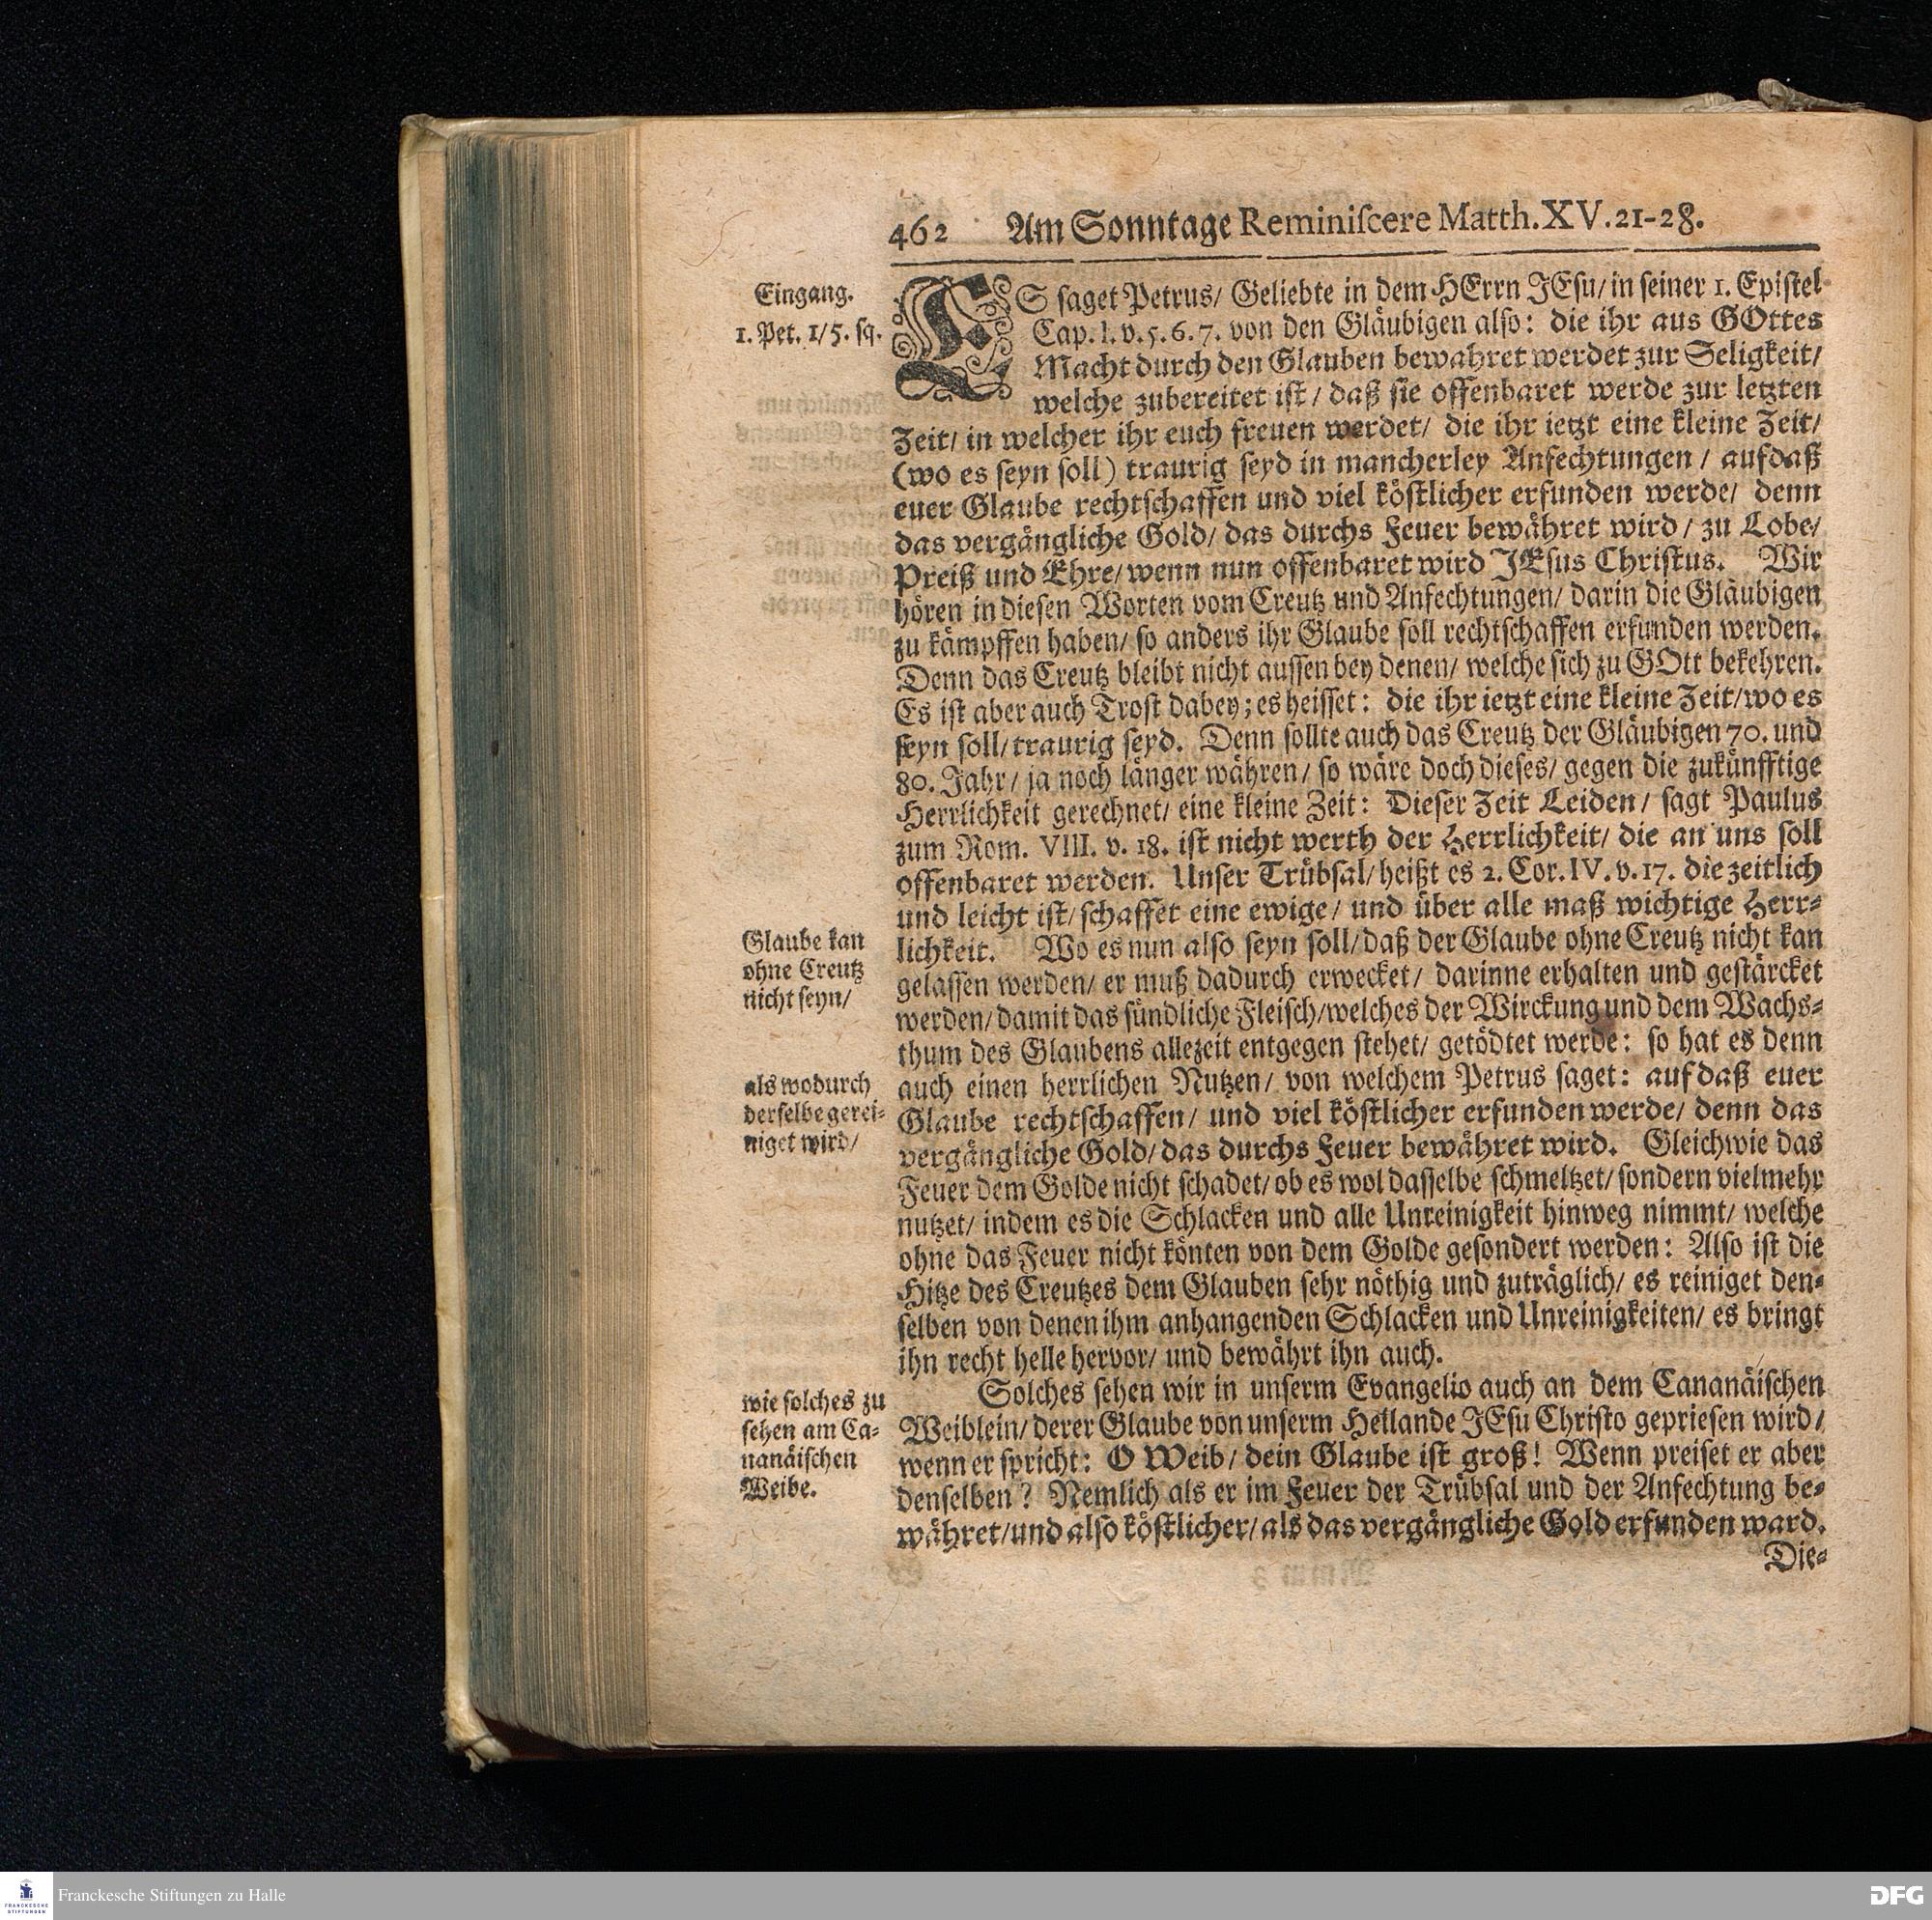 462 Am Sonntage Reminiscere Matth. XV. 21-28.
Eingang.
1. Pet. 1/5. sq.
ES saget Petrus/ Geliebte in dem HErrn JEsu/ in seiner 1. Epistel
Cap. I. v. 5. 6. 7. von den Gläubigen also: die ihr aus GOttes
Macht durch den Glauben bewahret werdet zur Seligkeit/
welche zubereitet ist/ daß sie offenbaret werde zur letzten
Zeit/ in welcher ihr euch freuen werdet/ die ihr ietzt eine kleine Zeit/
(wo es seyn soll) traurig seyd in mancherley Anfechtungen/ aufdaß
euer Glaube rechtschaffen und viel köstlicher erfunden werde/ denn
das vergängliche Gold/ das durchs Feuer bewähret wird/ zu Lobe/
Preiß und Ehre/ wenn nun offenbaret wird JEsus Christus. Wir
hören in diesen Worten vom Creutz und Anfechtungen/ darin die Gläubigen
zu kämpffen haben/ so anders ihr Glaube soll rechtschaffen erfunden werden.
Denn das Creutz bleibt nicht aussen bey denen/ welche sich zu GOtt bekehren.
Es ist aber auch Trost dabey; es heisset: die ihr ietzt eine kleine Zeit/ wo es
seyn soll/ traurig seyd. Denn sollte auch das Creutz der Gläubigen 70. und
80. Jahr/ ja noch länger währen/ so wäre doch dieses/ gegen die zukünfftige
Herrlichkeit gerechnet/ eine kleine Zeit: Dieser Zeit Leiden/ sagt Paulus
zum Rom. VIII. v. 18. ist nicht werth der Herrlichkeit/ die an uns soll
offenbaret werden. Unser Trübsal/ heißt es 2. Cor. IV. v. 17. die zeitlich
und leicht ist/ schaffet eine ewige/ und über alle maß wichtige Herr-
lichkeit. Wo es nun also seyn soll/ daß der Glaube ohne Creutz nicht kan
gelassen werden/ er muß dadurch erwecket/ darinne erhalten und gestärcket
werden/ damit das sündliche Fleisch/ welches der Wirckung und dem Wachs-
thum des Glaubens allezeit entgegen stehet/ getödtet werde: so hat es denn
auch einen herrlichen Nutzen/ von welchem Petrus saget: auf daß euer
Glaube rechtschaffen/ und viel köstlicher erfunden werde/ denn das
vergängliche Gold/ das durchs Feuer bewähret wird. Gleichwie das
Feuer dem Golde nicht schadet/ ob es wol dasselbe schmeltzet/ sondern vielmehr
nutzet/ indem es die Schlacken und alle Unreinigkeit hinweg nimmt/ welche
ohne das Feuer nicht könten von dem Golde gesondert werden: Also ist die
Hitze des Creutzes dem Glauben sehr nöthig und zuträglich/ es reiniget den-
selben von denen ihm anhangenden Schlacken und Unreinigkeiten/ es bringt
ihn recht helle hervor/ und bewährt ihn auch.
Glaube kan
ohne Creutz
nicht seyn/
als wodurch
derselbe gerei-
niget wird/
Solches sehen wir in unserm Evangelio auch an dem Cananäischen
Weiblein/ derer Glaube von unserm Heilande JEsu Christo gepriesen wird/
wenn er spricht: O Weib/ dein Glaube ist groß! Wenn preiset er aber
denselben? Nemlich als er im Feuer der Trübsal und der Anfechtung be-
währet/ und also köstlicher/ als das vergängliche Gold erfunden ward.
wie solches zu
sehen am Ca-
nanäischen
Weibe.
Die-
Franckesche Stiftungen zu Halle
FRANCKESCHE
STIFTUNGEN
DFG